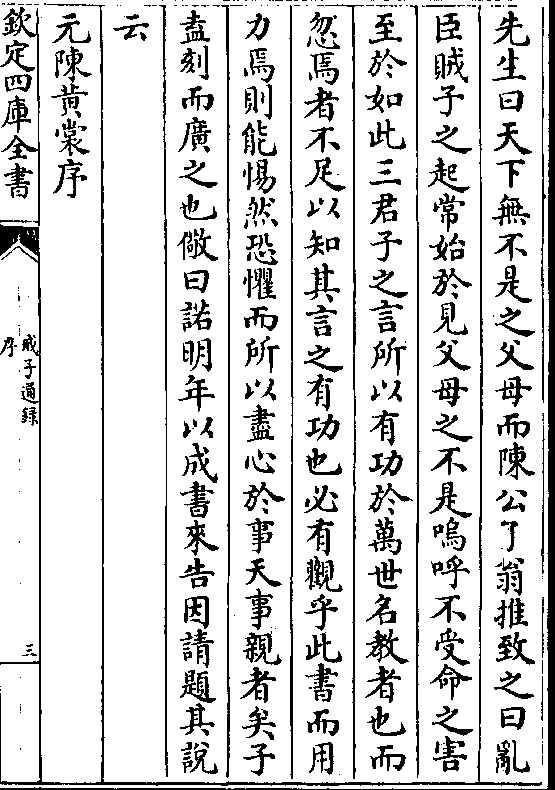 先生曰天下無不是之父母而陳公了翁推致之曰亂
臣賊子之起常始於見父母之不是嗚呼不受命之害
至於如此三君子之言所以有功於萬世名教者也而
忽焉者不足以知其言之有功也必有觀乎此書而用
力焉則能惕然恐懼而所以盡心於事天事親者矣子
盍刻而廣之也儆曰諾明年以成書來告因請題其說
云
元陳黄裳序
欽定四庫全書
戒子通録
序
三